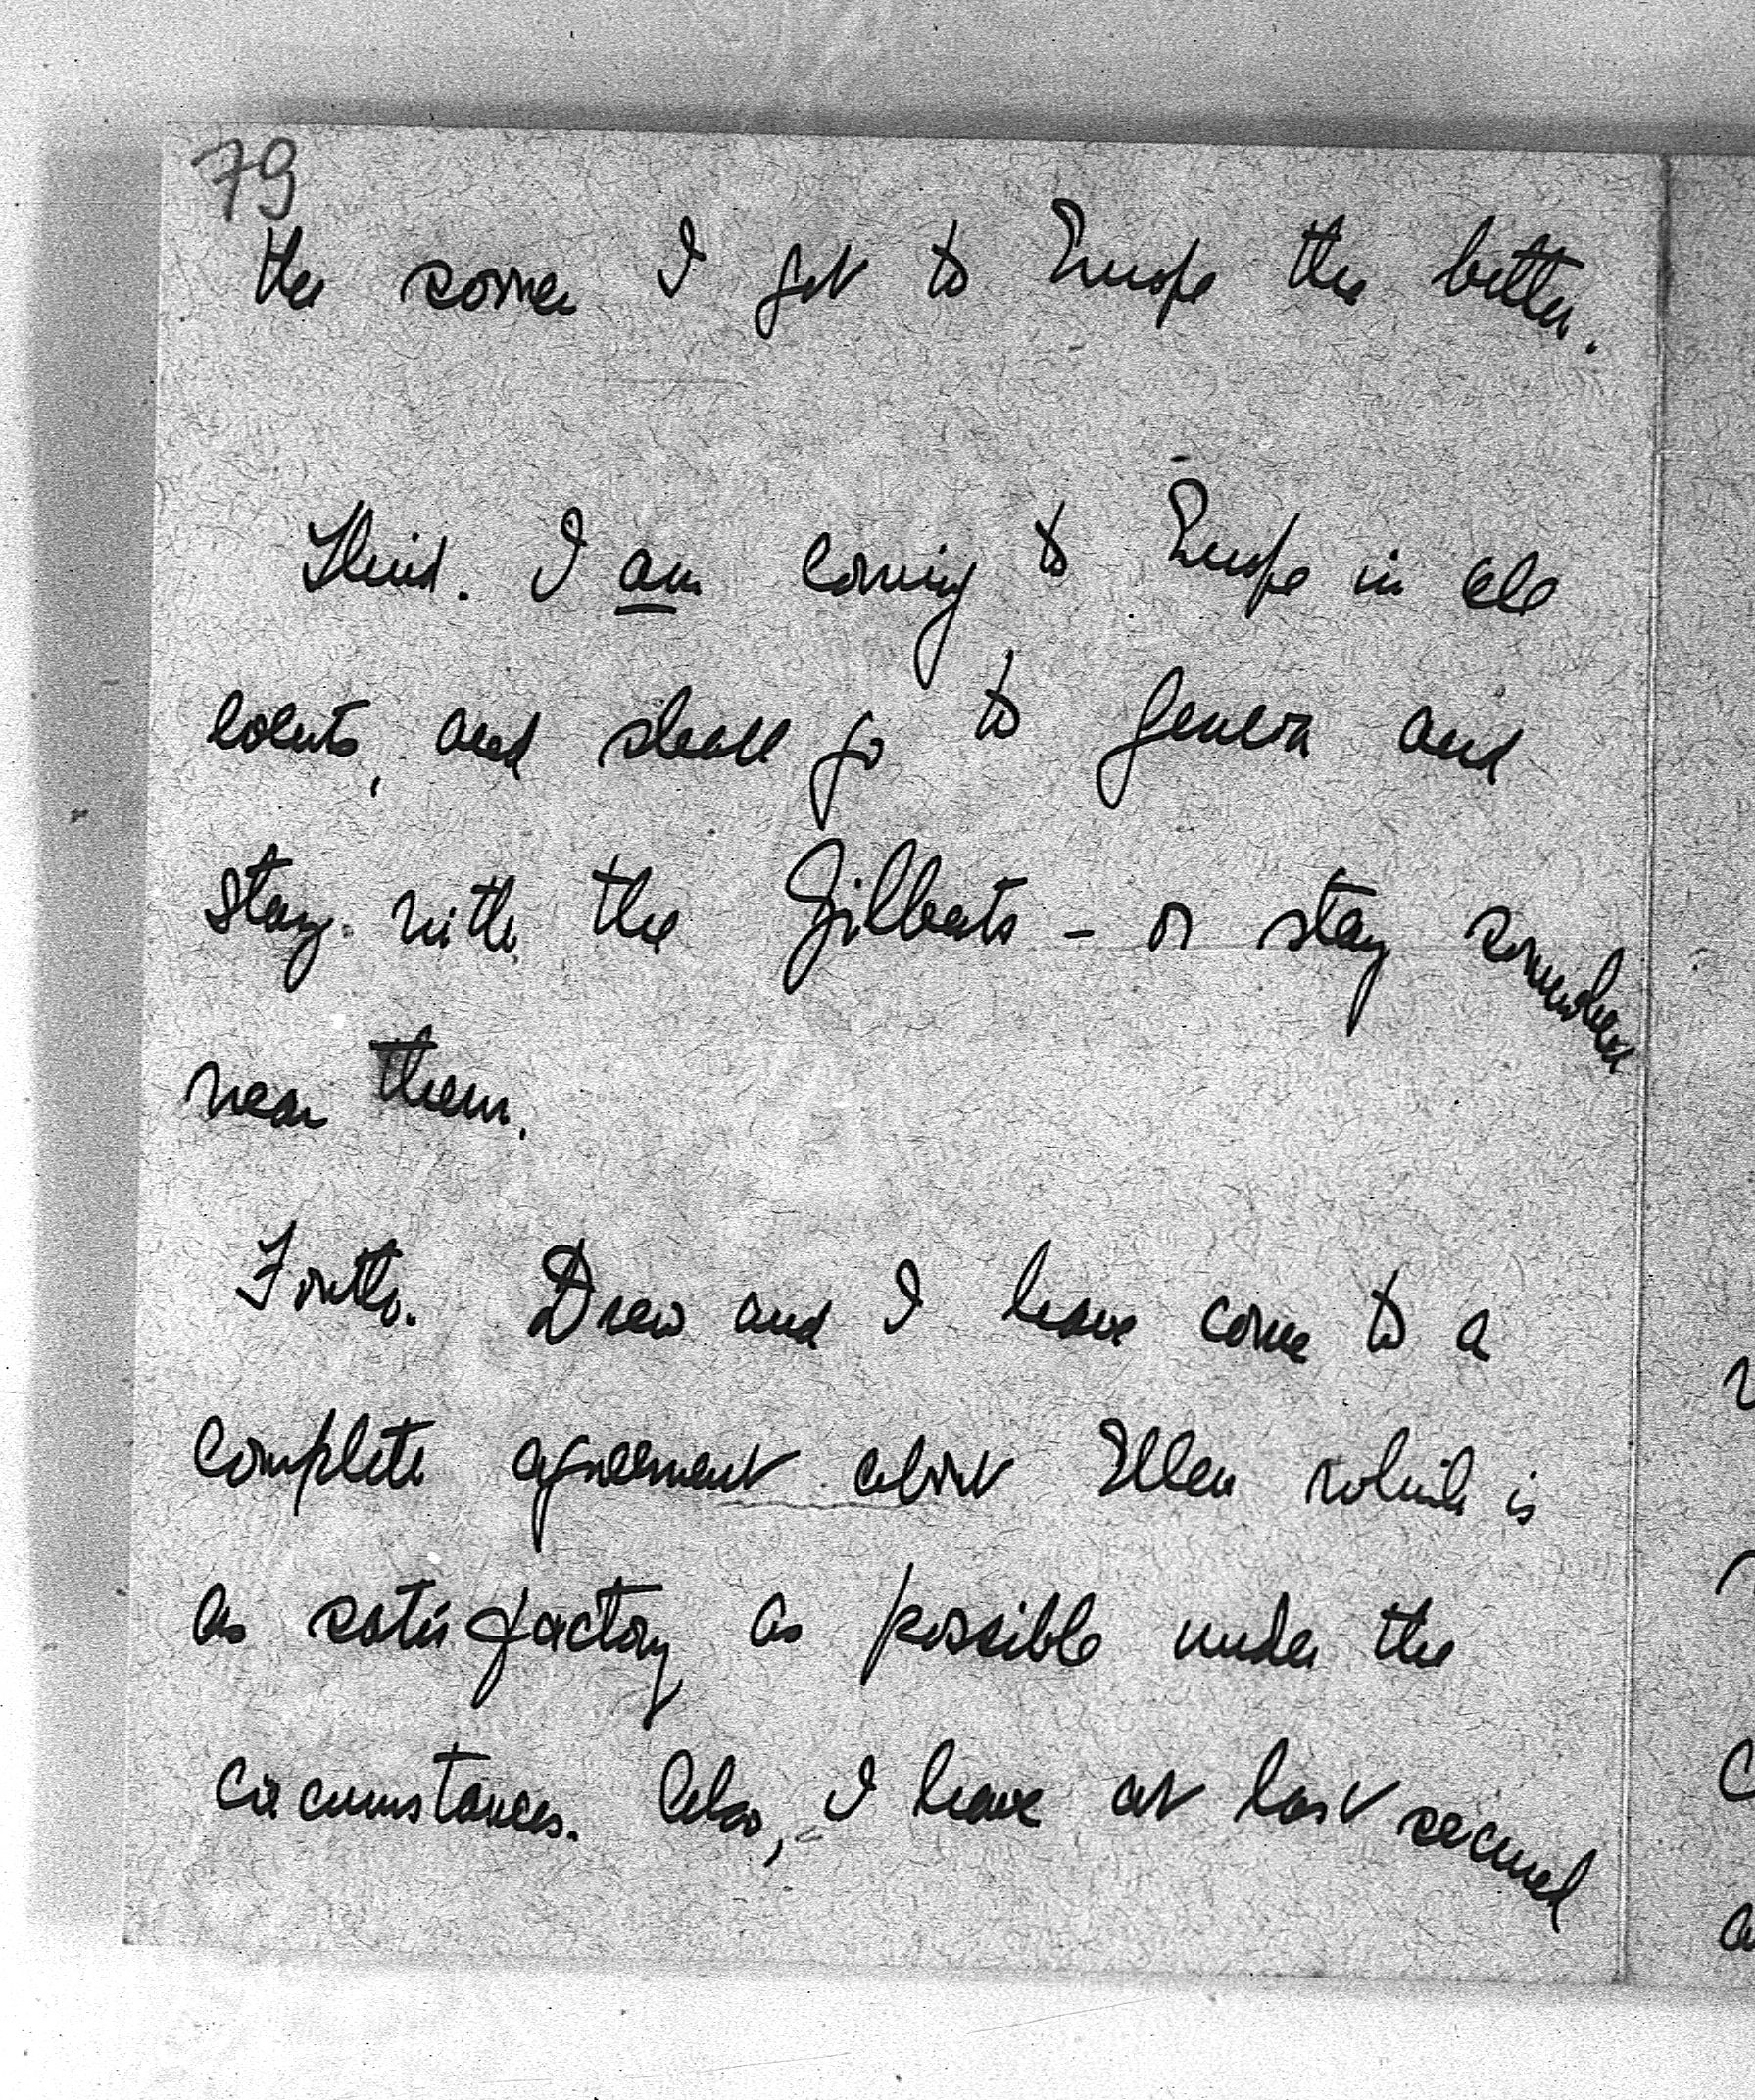 79
the sooner I get to Europe the better.
Third. I am coming to Europe in all
events, and shall go to Geneva and
stay with the Gilberts - or stay somewhere
near them.
Forth. Drew and I have come to a
complete agreement about Ellen which is
as satisfactory as possible under the
circumstances. Also, I have at last secured